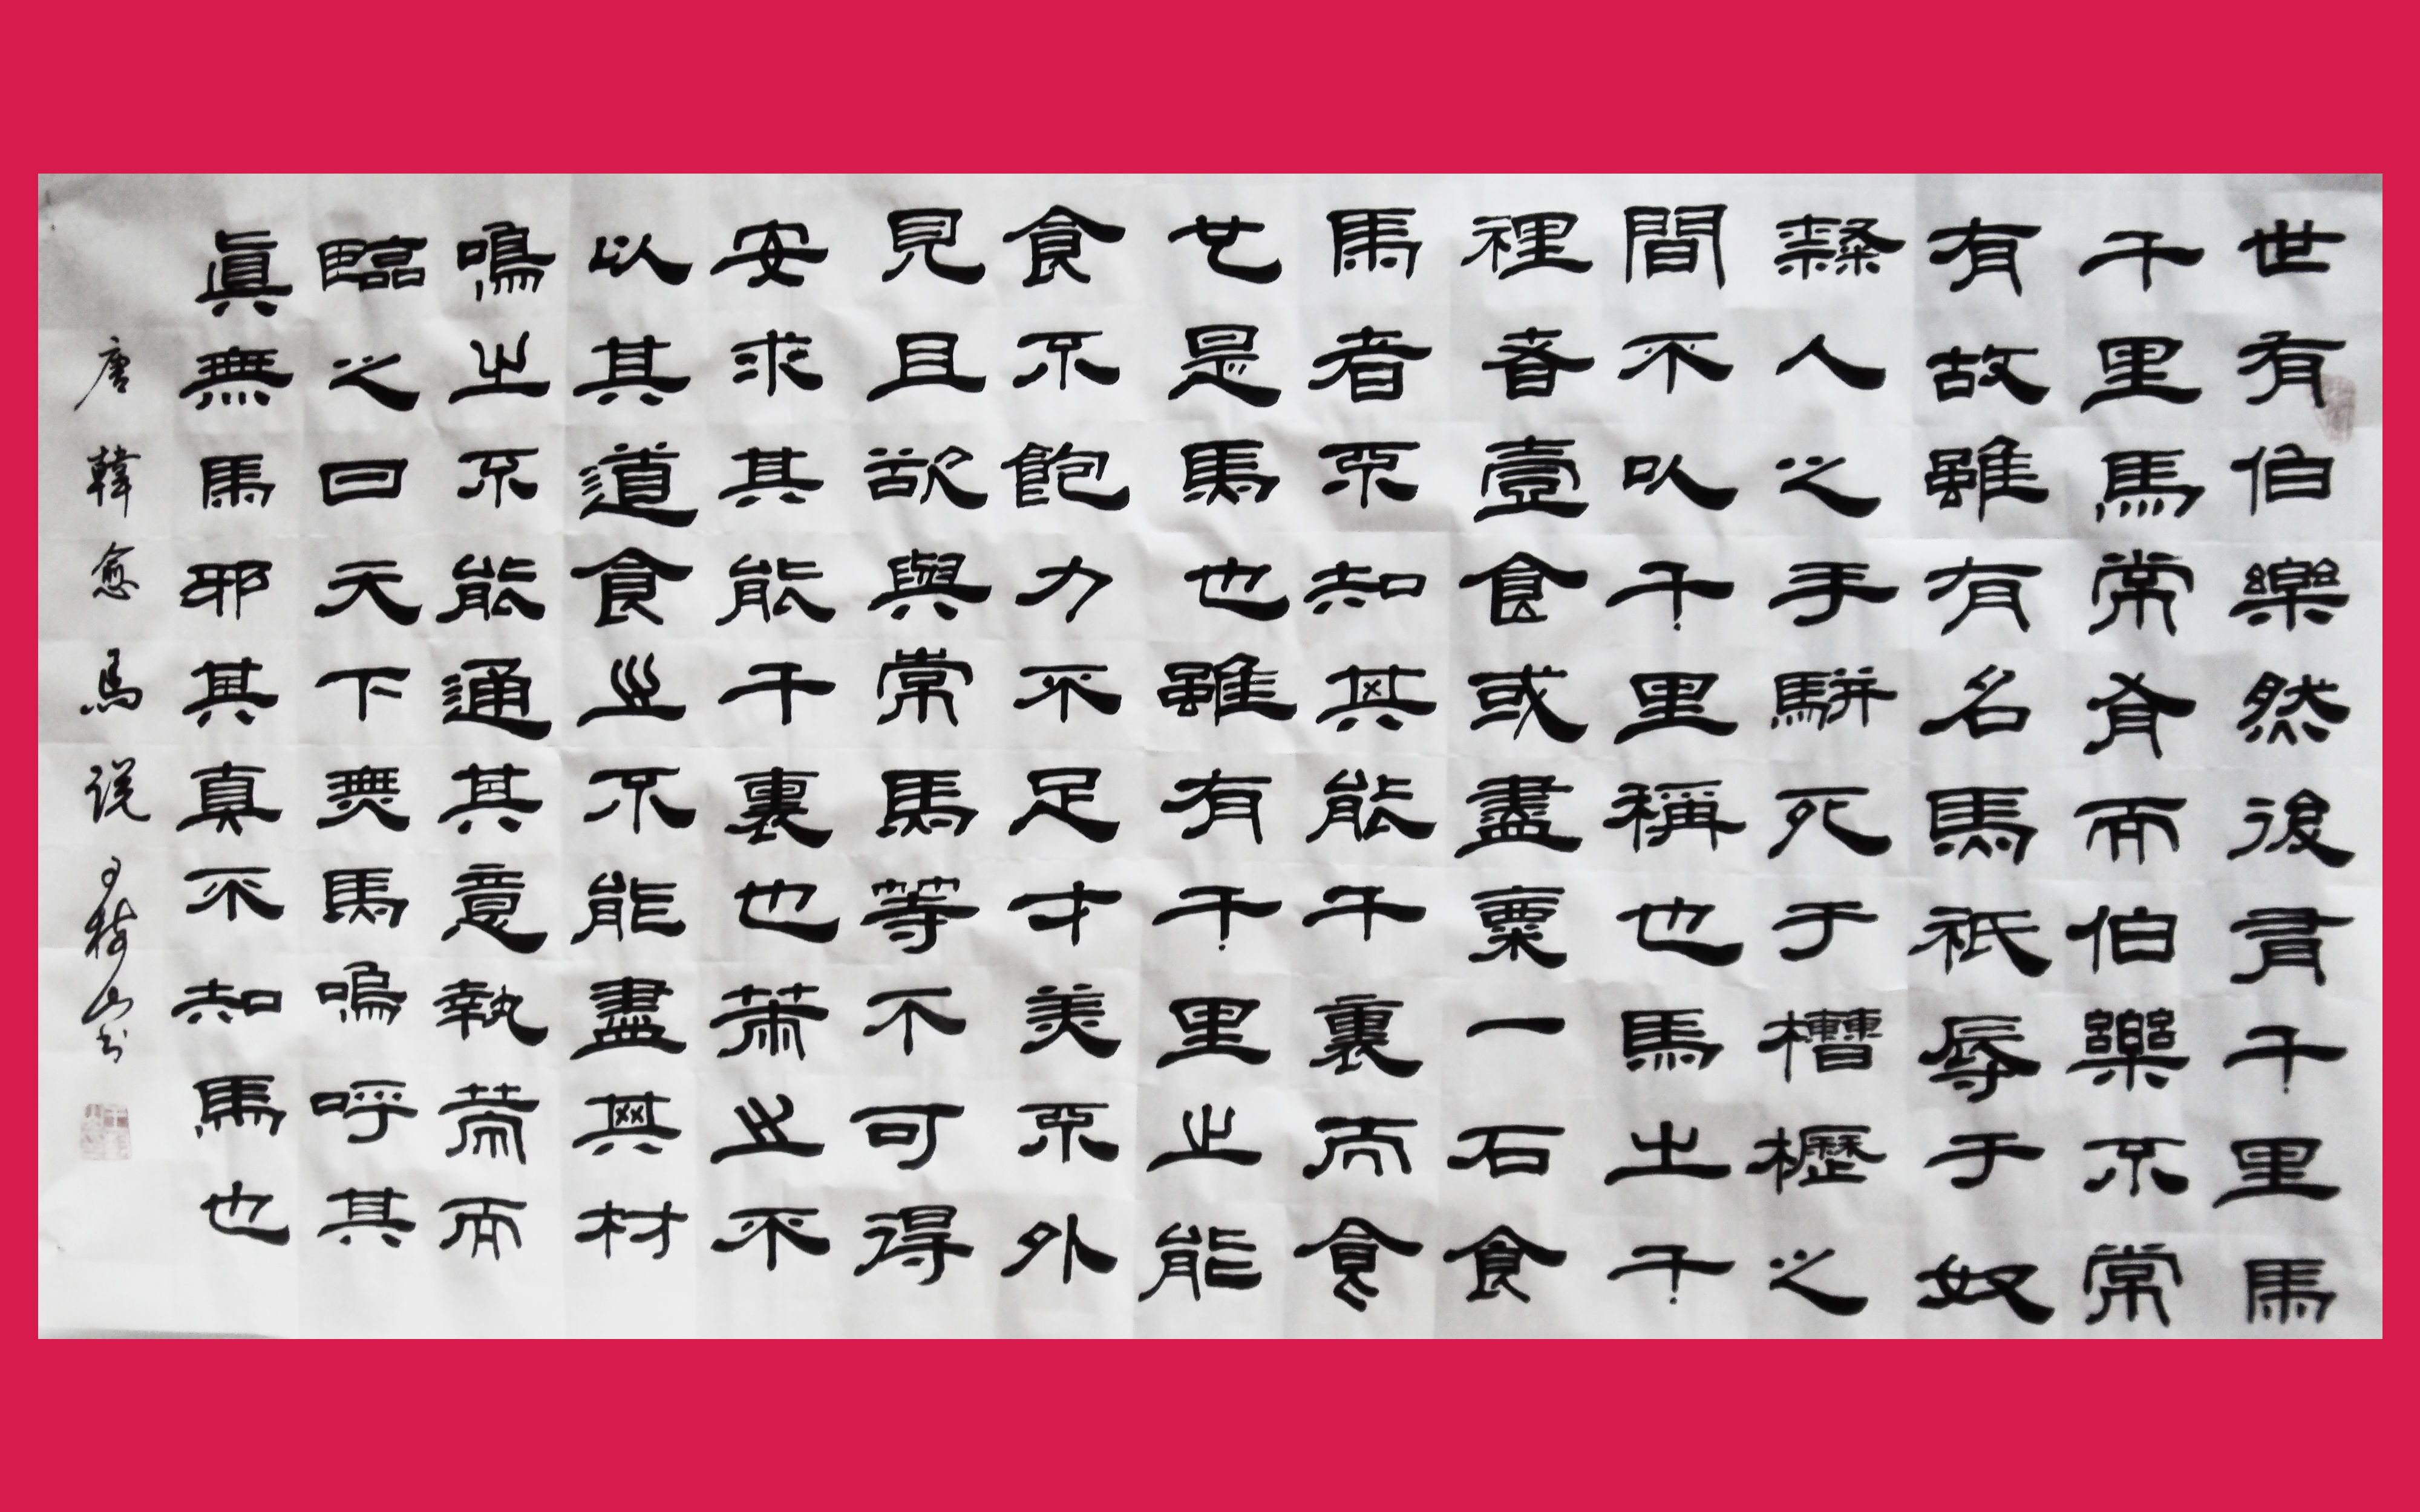 世有伯樂然後有千里馬
千里馬常有而伯樂不常
有故雖有名馬祇辱于奴
隸人之手駢死于槽櫪之
間不以千里稱也馬之千
裡者壹食或盡粟一石食
馬者不知其能千裏而食
也是馬也雖有千里之能
食不飽力不足才美不外
見且欲與常馬等不可得
安求其能千裏也策之不
以其道食之不能盡其材
鳴之不能通其意執策而
臨之曰天下無馬嗚呼其
眞無馬邪其真不知馬也
唐韓愈馬说山书